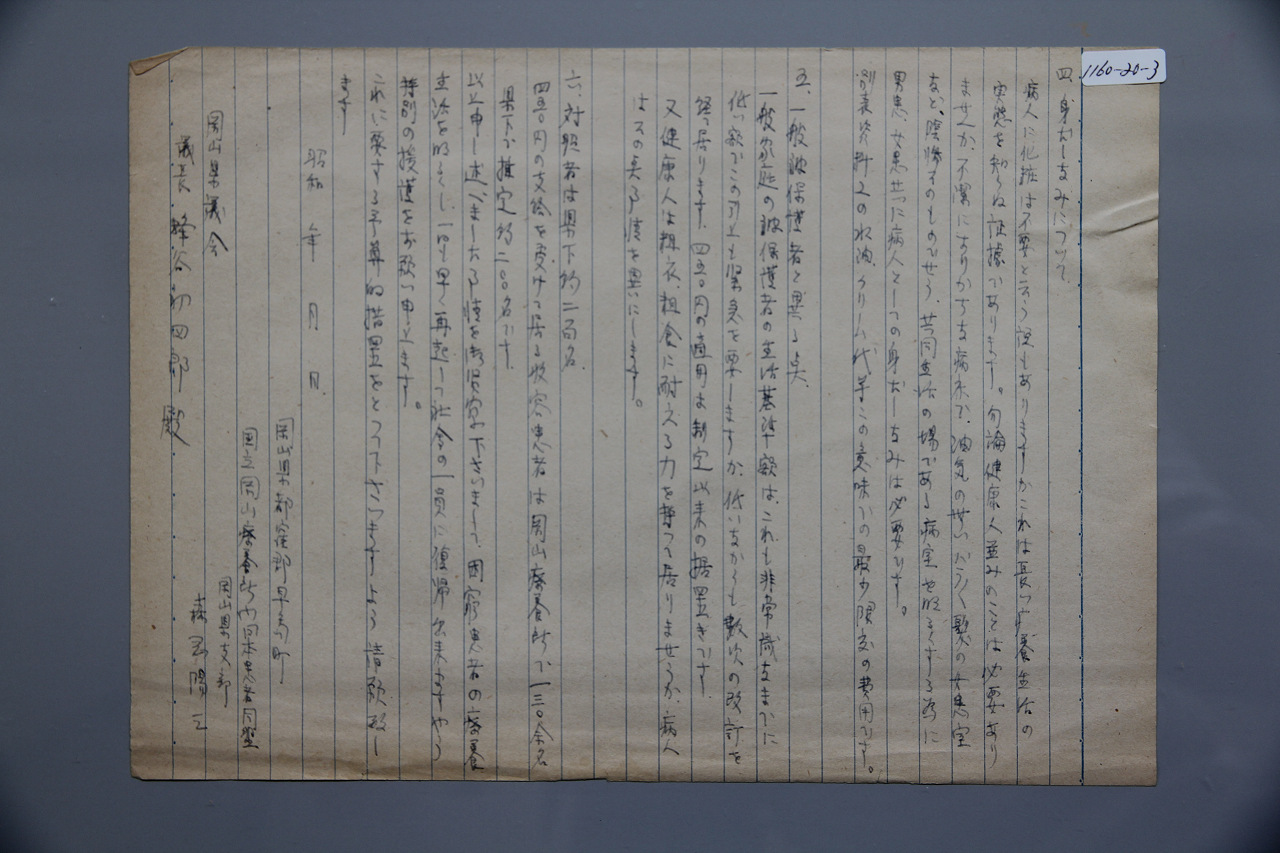 1160-20-3
四、身だしなみについて、
病人に化粧は不要と云う説もありますがこれは長い療養生活の
実態を知らぬ証據であります。勿論健康人並みのことは必要あり
ませんが、不潔になりがちな病衣で、油気のせいバラバラ髪の女患室
など、陰惨そのものでせう、共同生活の場である病室を明るくする為に
男患、女患共に病人としての身だしなみは必要です。
別表資料2の水油、クリーム代等この意味での最少限度の費用です。
五、一般被保護者と異る点、
一般家庭の被保護者の生活基準額は、これも非常識なまでに
低い額でこの引上も緊急を要しますが、低いながらも数次の改訂を
経て居ります、四五〇円の適用は制定以来の据置きです、
又健康人は粗衣、粗食に耐える力を持って居りませうが、病人
はその点事情を異にします。
六、対照者は県下約二百名、
四五〇円の支給を受けて居る収容患者は岡山療養所で一三〇余名
県下で推定約二〇〇名です、
以上申し述べました事情を御賢察下さいまして、困窮患者の療養
生活を明るくし一日も早く再起して社会の一員に復帰出来ますやう
特別の援護をお願い申上ます。
これに要する予算的措置をとって下さいますよう請願致し
ます
昭和 年 月 日、
岡山県都窪郡早島町
国立岡山療養所内日本患者同盟
岡山県支部
岡山県議会
議長 蜂谷初四郎 殿